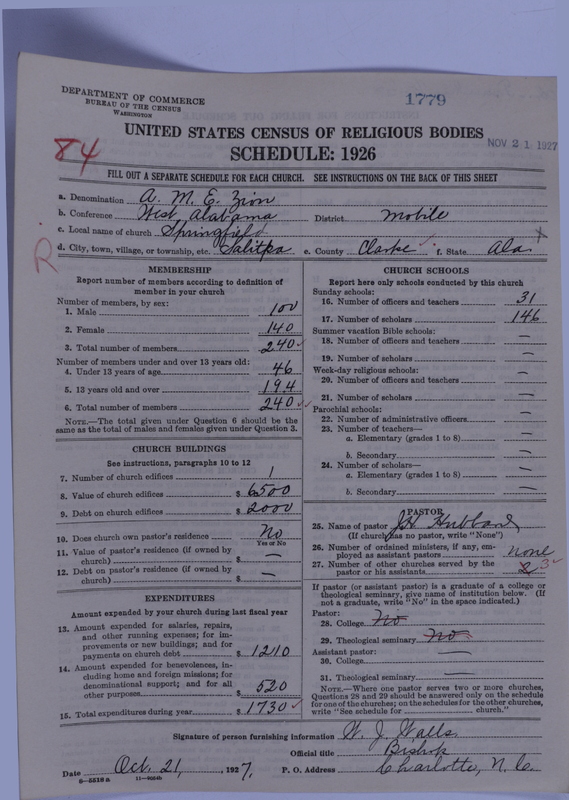 DEPARTMENT OF COMMERCE
BUREAU OF THE CENSUS
WASHINGTON
1779
UNITED STATES CENSUS OF RELIGIOUS BODIES
SCHEDULE: 1926
NOV 21 1927
84
FILL OUT A SEPARATE SCHEDULE FOR EACH CHURCH. SEE INSTRUCTIONS ON THE BACK OF THIS SHEET
a. Denomination A. M. E. Zion
b. Conference West Alabama District Mobile
c. Local name of church Springfield
d. City, town, village, or township, etc. Salitpa e. County Clarke f. State Ala x
R
MEMBERSHIP
Report number of members according to definition of
member in your church
Number of members, by sex:
1. Male 100
2. Female 140
3. Total number of members 240
Number of members under and over 13 years old:
4. Under 13 years of age 46
5. 13 years old and over 194
6. Total number of members 240
NOTE.—The total given under Question 6 should be
same as the total of males and females given under Question 3.
CHURCH BUILDINGS
See instructions, paragraphs 10 to 12
7. Number of church edifices 1
8. Value of church edifices $ 6500
9. Debt on church edifices $ 2000
10. Does church own pastor's residence No
Yes or No
11. Value of pastor's residence (if owned by
church) $ —
12. Debt on pastor's residence (if owned by
church) $ —
EXPENDITURES
Amount expended by your church during last fiscal year
13. Amount expended for salaries, repairs,
and other running expenses; for im-
provements or new buildings; and for
payments on church debt $ 1210
14. Amount expended for benevolences, in-
cluding home and foreign missions; for
denominational support; and for all
other purposes $ 520
15. Total expenditures during year $ 1730
CHURCH SCHOOLS
Report here only schools conducted by this church
Sunday schools:
16. Number of officers and teachers 31
17. Number of scholars 146
Summer vacation Bible schools:
18. Number of officers and teachers —
19. Number of scholars —
Week-day religious schools:
20. Number of officers and teachers —
21. Number of scholars —
Parochial schools:
22. Number of administrative officers —
23. Number of teachers—
a. Elementary (grades 1 to 8) —
b. Secondary —
24. Number of scholars—
a. Elementary (grades 1 to 8) —
b. Secondary —
PASTOR
25. Name of pastor Hubbard
(If church has no pastor, write "None")
26. Number of ordained ministers, if any, em-
ployed as assistant pastors none
27. Number of other churches served by the
pastor or his assistants 2 3
If pastor (or assistant pastor) is a graduate of a college or
theological seminary, give name of institution below. (If
not a graduate, write "No" in the space indicated.)
Pastor:
28. College No
29. Theological seminary No
Assistant pastor:
30. College —
31. Theological seminary —
NOTE.—Where one pastor serves two or more churches,
Questions 28 and 29 should be answered only on the schedule
for one of the churches; on the schedules for the other churches,
write "See schedule for church."
Signature of person furnishing information W. J. Walls
Official title Bishop
Date Oct. 21, 1927, P. O. Address Charlotte, N. C.